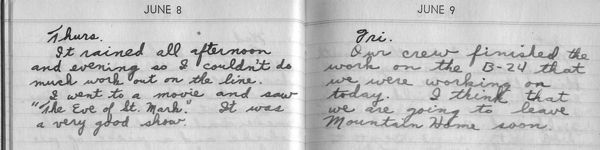 JUNE 8
Thurs.
It rained all afternoon
and evening so I couldn't do
much work out on the line.
I went to a movie and saw
"The Eve of St. Mark." It was
a very good show.
JUNE 9
Fri.
Our crew finished the
work on the B-24 that
we were working on
today. I think that
we are going to leave
Mountain Home soon.